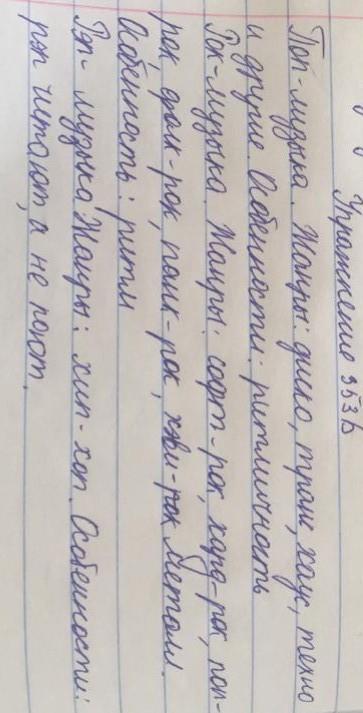 Упражнение 353 б
Поп-музыка. Жанры: диско, транс, хаус, техно
и другие. Особенности: ритмичность
Рок-музыка. Жанры: софт-рок, хард-рок, поп-
рок, фолк-рок, панк-рок, хэви-рок, металл.
Особенность: ритм
Рэп-музыка. Жанры: хип-хоп. Особенности:
рэп читают, а не поют.